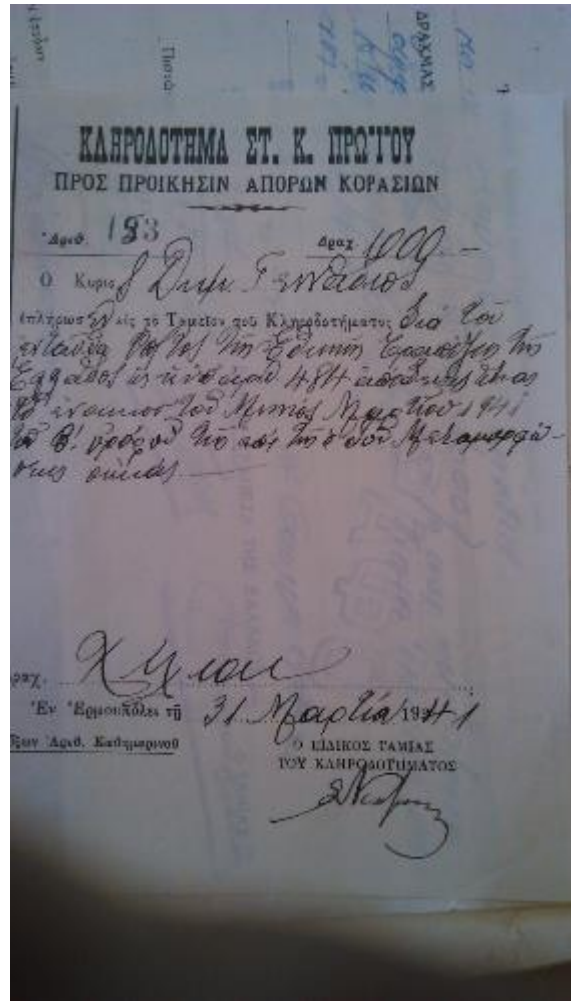 ΔΡΑΧΜΑΣ
ΚΛΗΡΟΔΟΤΗΜΑ ΣΤ. Κ. ΠΡΩΪΟΥ
ΠΡΟΣ ΠΡΟΙΚΗΣΙΝ ΑΠΟΡΩΝ ΚΟΡΑΣΙΩΝ
Ἀριθ. 183 Δραχ. 1000.—
Ο Κύριος Δημ. Γεννάδιος
ἐπλήρωσεν εἰς τὸ Ταμεῖον τοῦ Κληροδοτήματος διὰ τοῦ
ἐνταῦθα τος τῆς Ἐθνικῆς Τραπέζης τῆς
Ἑλλάδος ὑπ' ἀριθ. 484 ἀποδείξεως
τὸ ἐνοίκιον τοῦ Μηνὸς Μαρτίου 1941
τοῦ Β. ὀρόφου τῆς ἐπὶ τῆς ὁδοῦ Μεταμορφώ-
σεως οἰκίας
ραχ. Χίλιαι
Ἐν Ἑρμουπόλει τῇ 31 Μαρτίου 1941
Ἀριθ. Καθημερινοῦ
Ο ΕΙΔΙΚΟΣ ΤΑΜΙΑΣ
ΤΟΥ ΚΛΗΡΟΔΟΤΗΜΑΤΟΣ